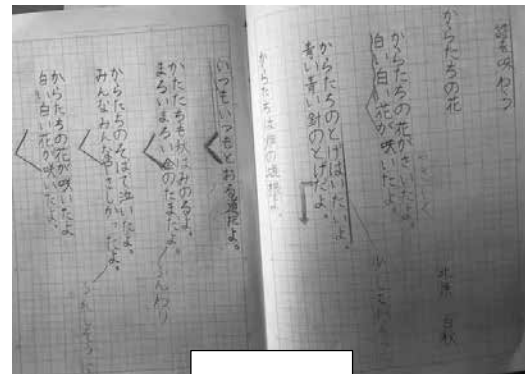 詩を味わう
からたちの花
北原 白秋
からたちの花がさいたよ。
白い白い花が咲いたよ。
からたちのとげはいたいよ。
青い青い針のとげだよ。
からたちは畑の垣根よ。
いつもいつもとおる道だよ。
からたちも秋はみのるよ。
まろいまろい金のたまだよ。
からたちのそばで泣いたよ。
みんなみんなやさしかったよ。
からたちの花が咲いたよ。
白い白い花が咲いたよ。